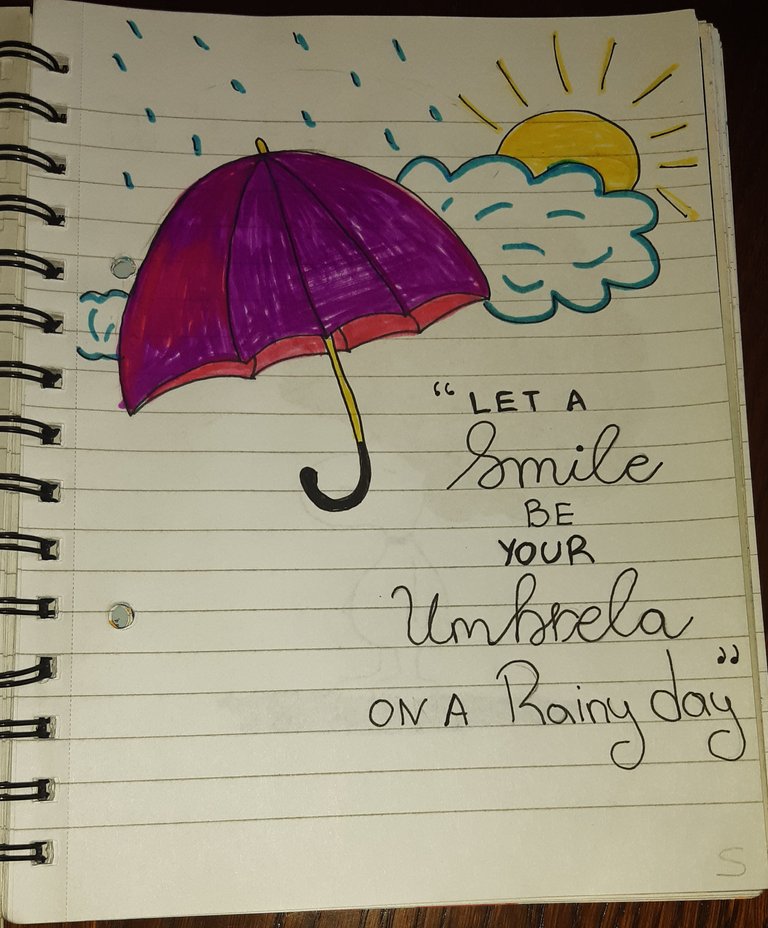 “ LET A
Smile
BE
YOUR
Umbrela
ON A Rainy day”
S